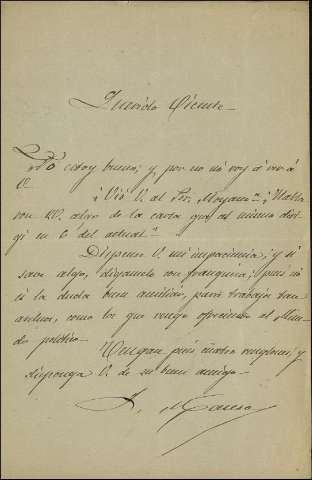 Querido Vicente
No estoy bueno; y, por no voy á ver á
V.
¿Vió V. al Sr. Moyano? ¿Habla
con V. algo de la carta que al mismo diri-
gí en 6 del actual?
Dispense V. mi impaciencia; y si
sabe algo, dígamelo con franqueza; pues no
es la duda buen auxiliar, para trabajos tan
como los que vengo ofreciendo al Mun-
do político.
Vengan pues cuatro renglones, y
disponga V. de su buen amigo